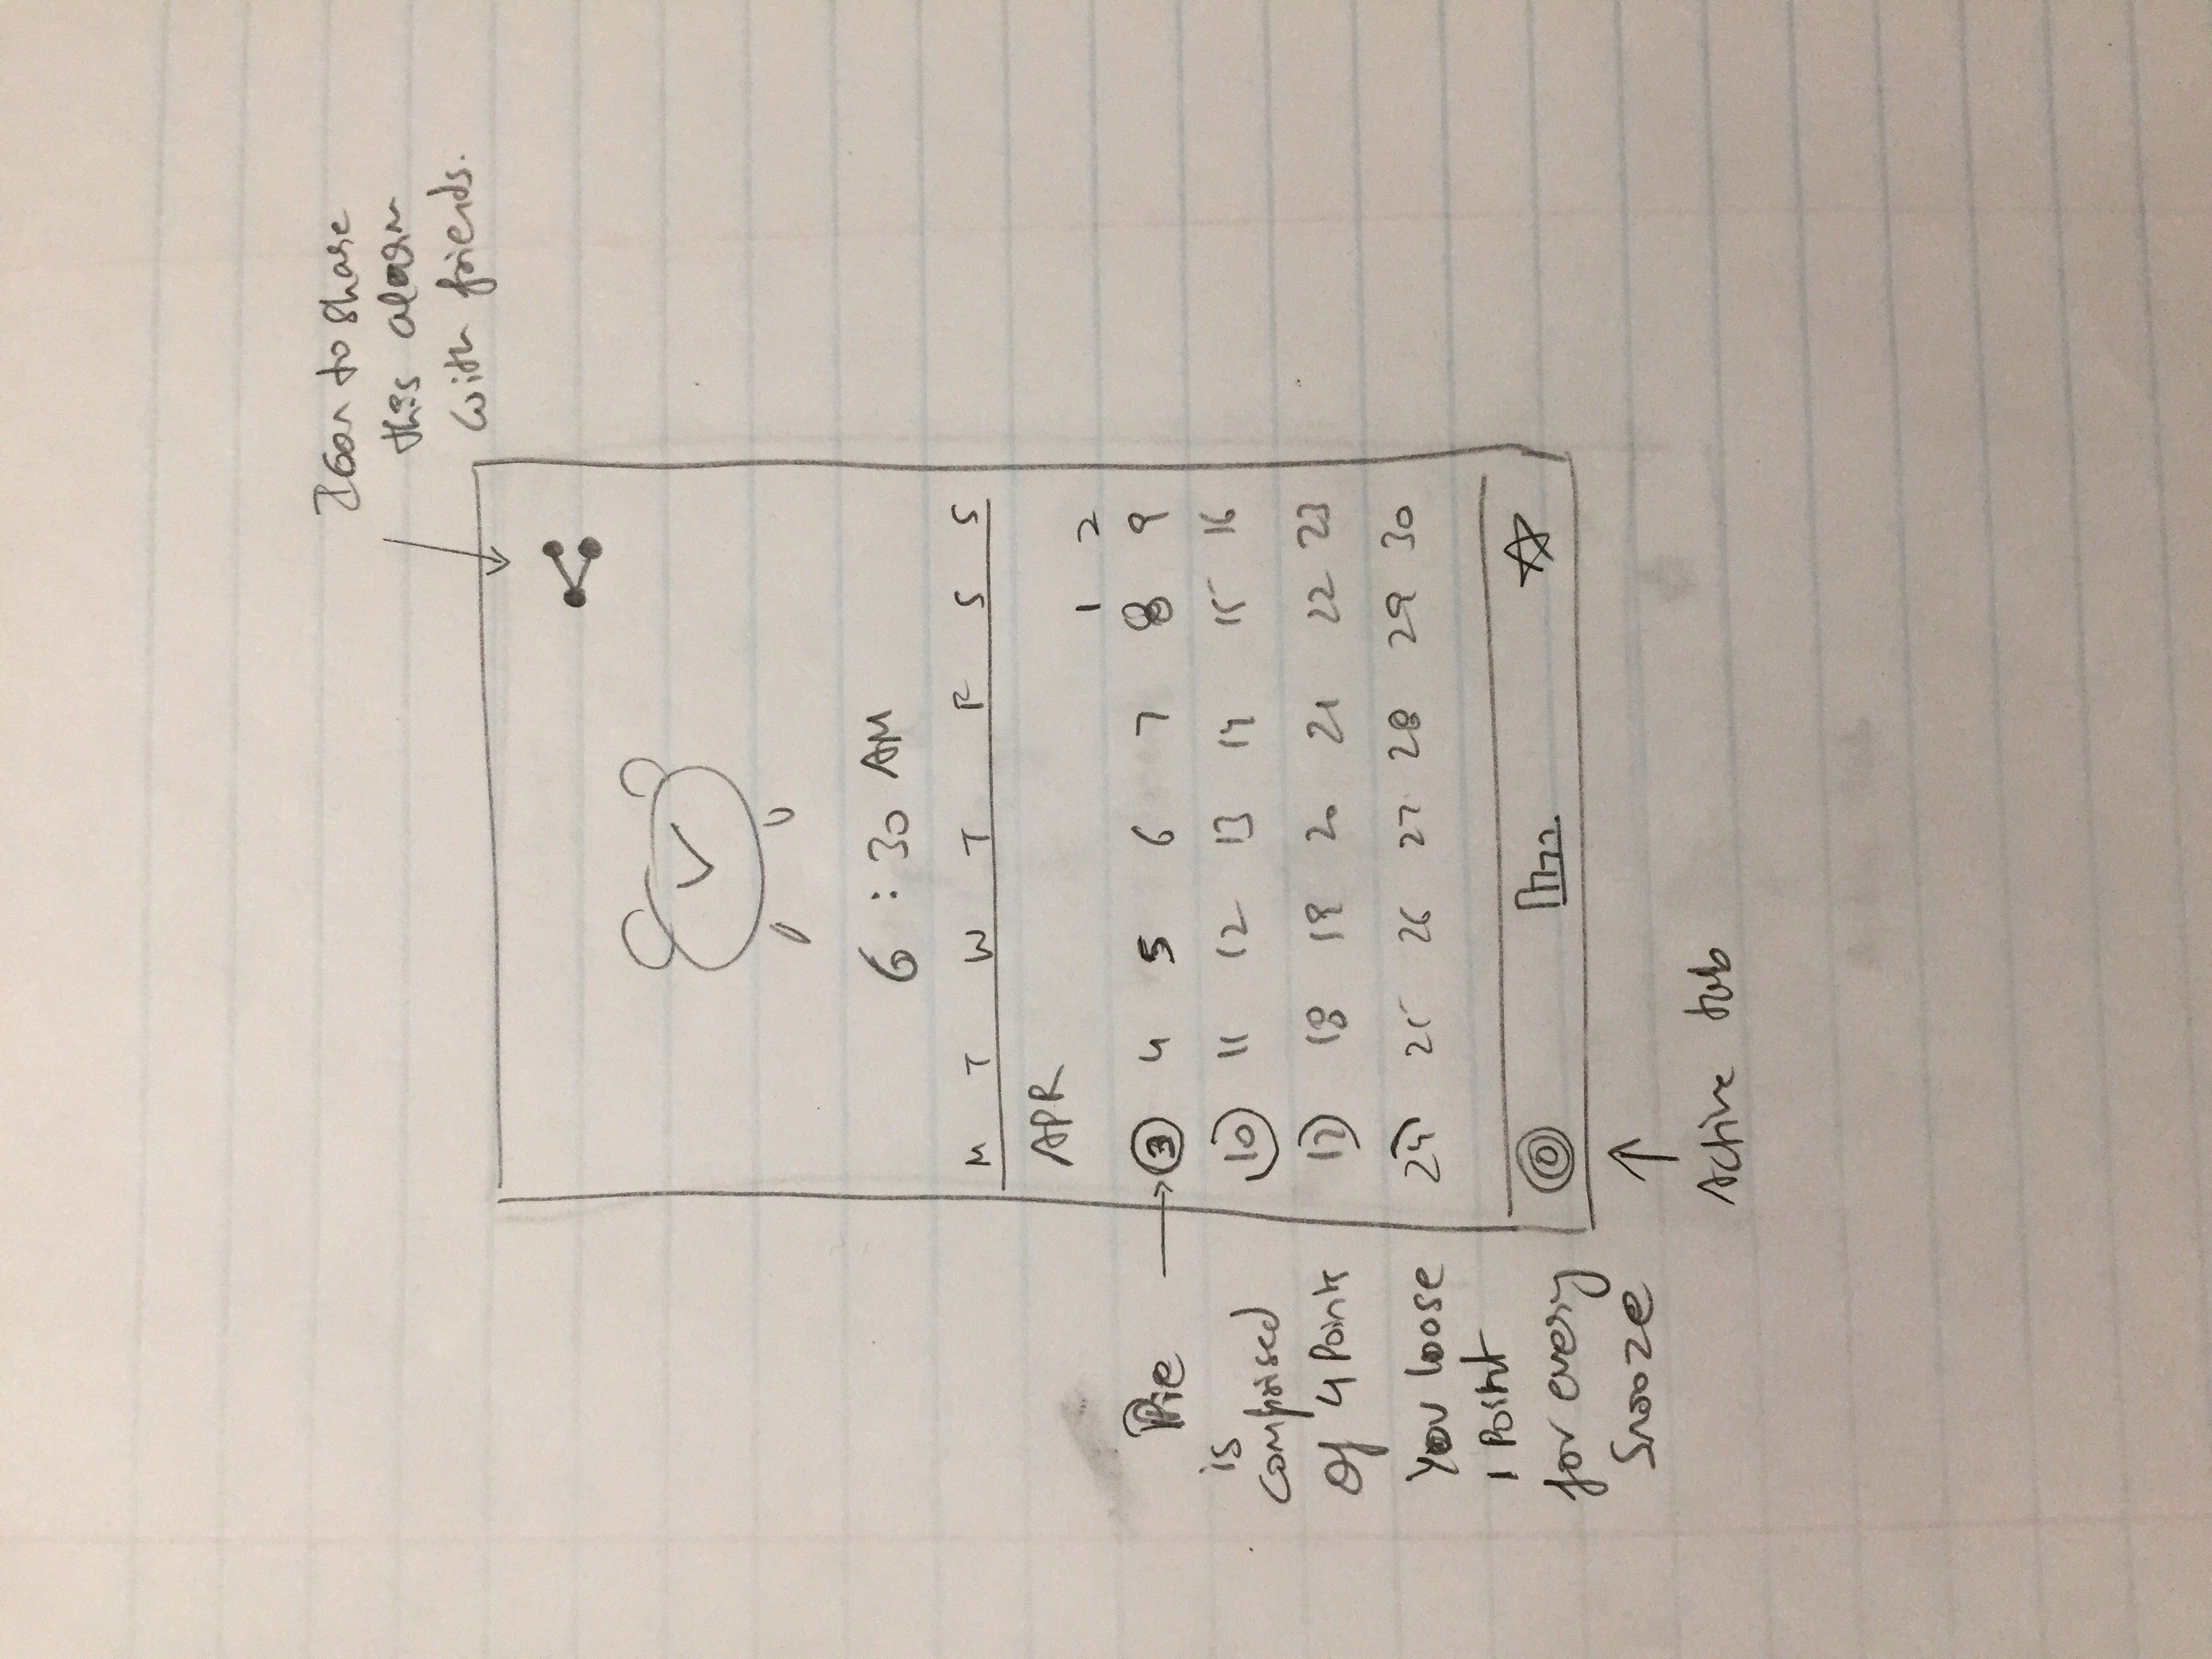 Icon to share
this alarm
with friends.
6 : 30 AM
M T W T F S S
APR
1 2
3 4 5 6 7 8 9
10 11 12 13 14 15 16
17 18 19 20 21 22 23
24 25 26 27 28 29 30
Pie
is
comprised
of 4 Points
You loose
1 Point
for every
Snooze
Active tab